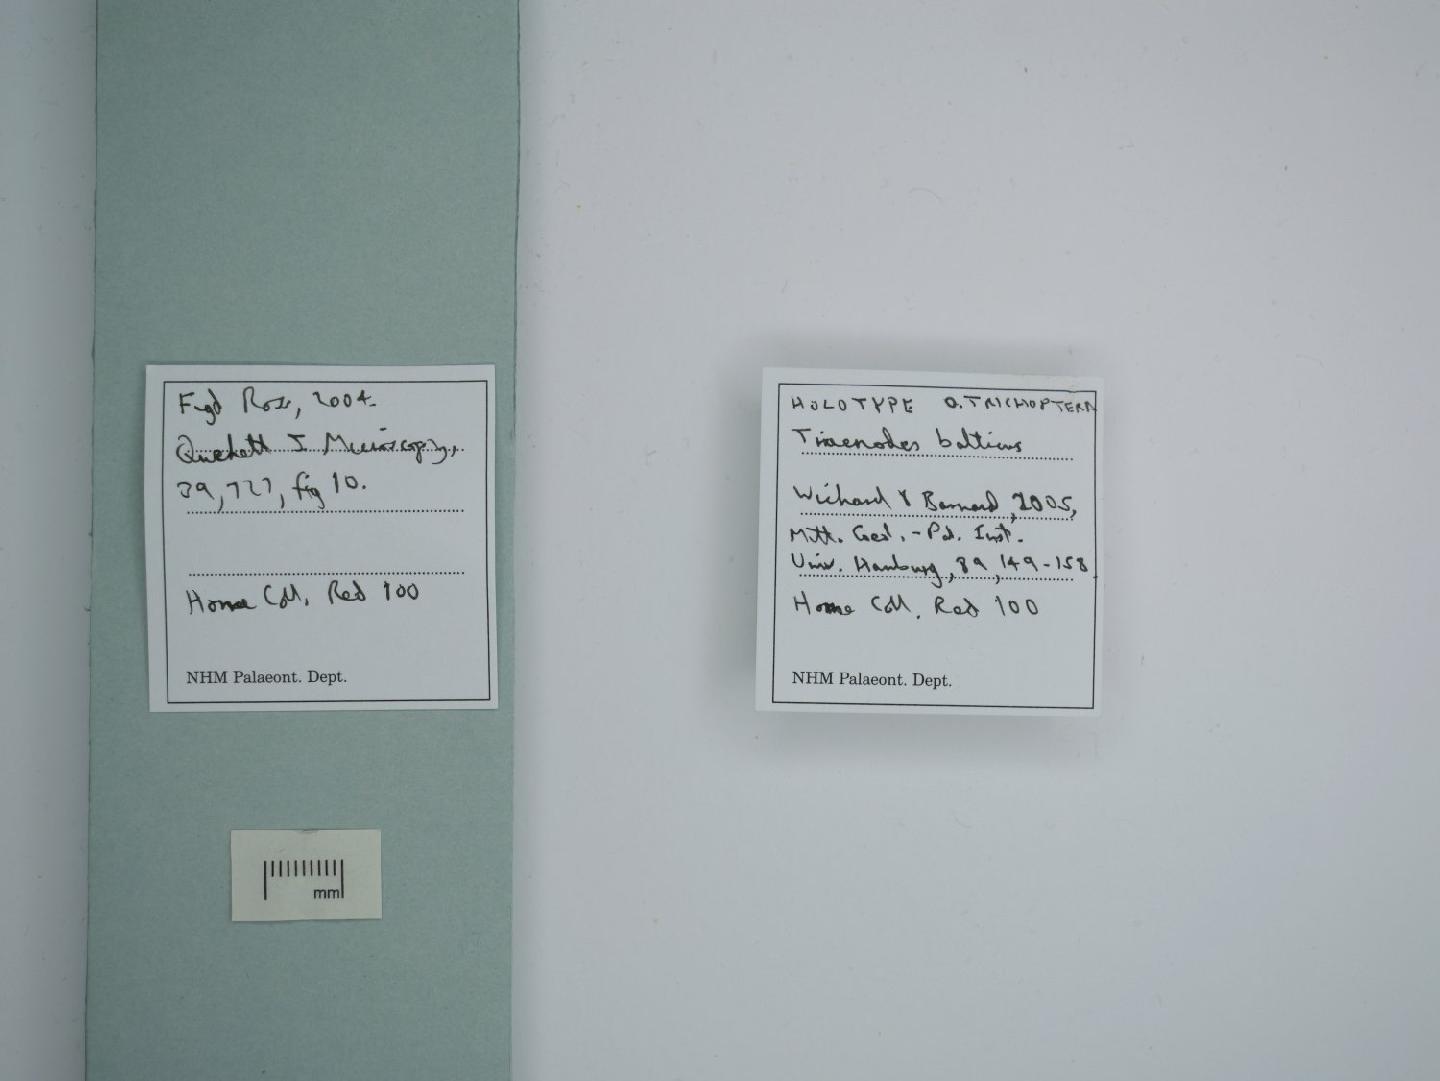 Figd Ross, 2004.
Quekett J. Microscopy,
39, 727, fig 10.
Horne Coll. Red 100
NHM Palaeont. Dept.
mm
HOLOTYPE O. TRICHOPTERA
Triaenodes balticus
Wichard & Barnard, 2005,
Mitt. Geol.-Pal. Inst.
Univ. Hamburg, 89, 149-158
Horne Coll. Red 100
NHM Palaeont. Dept.